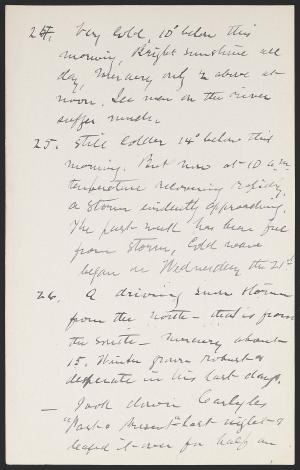 24. Very Cold, 10° below this
morning, Bright sunshine all
day, Mercury only 2 above at
noon. Ice men on the river
suffer much.
25. Still Colder 14° below this
morning. But now at 10 a.m
temperature recovering rapidly,
a storm evidently approaching.
The past week has been free
from storm, Cold wave
began on Wednesday the 21st
26. A driving snow storm
from the north - that is from
the south - Mercury about
15. Winter grown robust &
desperate in his last days.
— Took down Carlyles
"Past & Present" last night &
leafed it over for half an